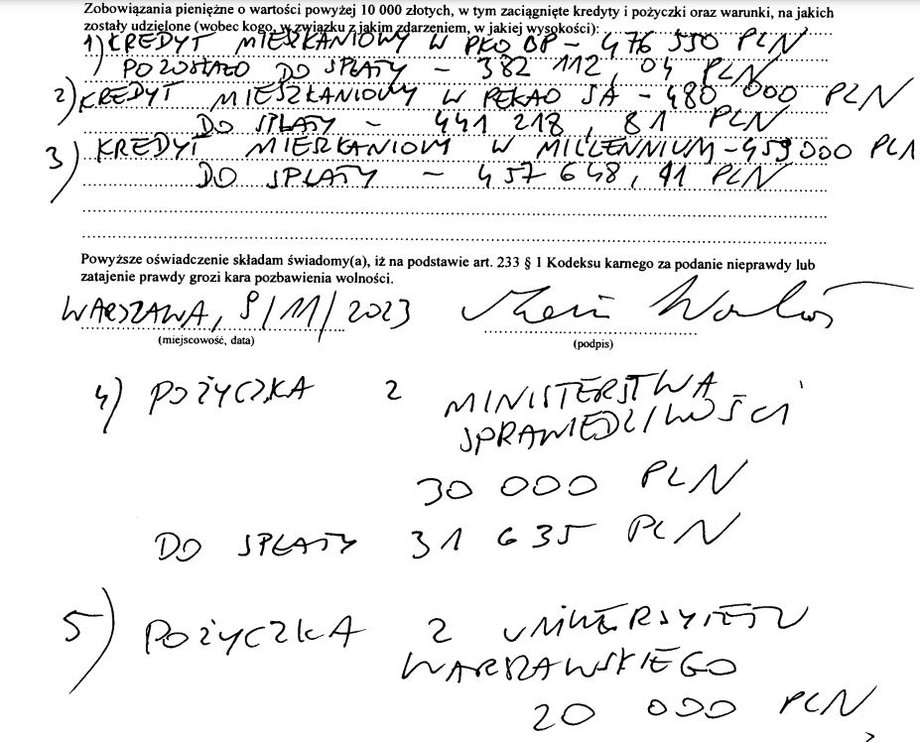 Zobowiązania pieniężne o wartości powyżej 10 000 złotych, w tym zaciągnięte kredyty i pożyczki oraz warunki, na jakich
zostały udzielone (wobec kogo, w związku z jakim zdarzeniem, w jakiej wysokości):
1) KREDYT MIESZKANIOWY W PKO BP - 476 550 PLN
POZOSTAŁO DO SPŁATY - 382 112,04 PLN
2) KREDYT MIESZKANIOWY W PEKAO SA - 480 000 PLN
DO SPŁATY - 441 218,81 PLN
3) KREDYT MIESZKANIOWY W MILLENNIUM - 459 000 PLN
DO SPŁATY - 457 648,11 PLN
Powyższe oświadczenie składam świadomy(a), iż na podstawie art. 233 § 1 Kodeksu karnego za podanie nieprawdy lub
zatajenie prawdy grozi kara pozbawienia wolności.
WARSZAWA, 9/11/2023
(miejscowość, data)
(podpis)
4) POŻYCZKA Z MINISTERSTWA
SPRAWIEDLIWOŚCI
30 000 PLN
DO SPŁATY 31 635 PLN
5) POŻYCZKA Z UNIWERSYTETU
WARSZAWSKIEGO
20 000 PLN